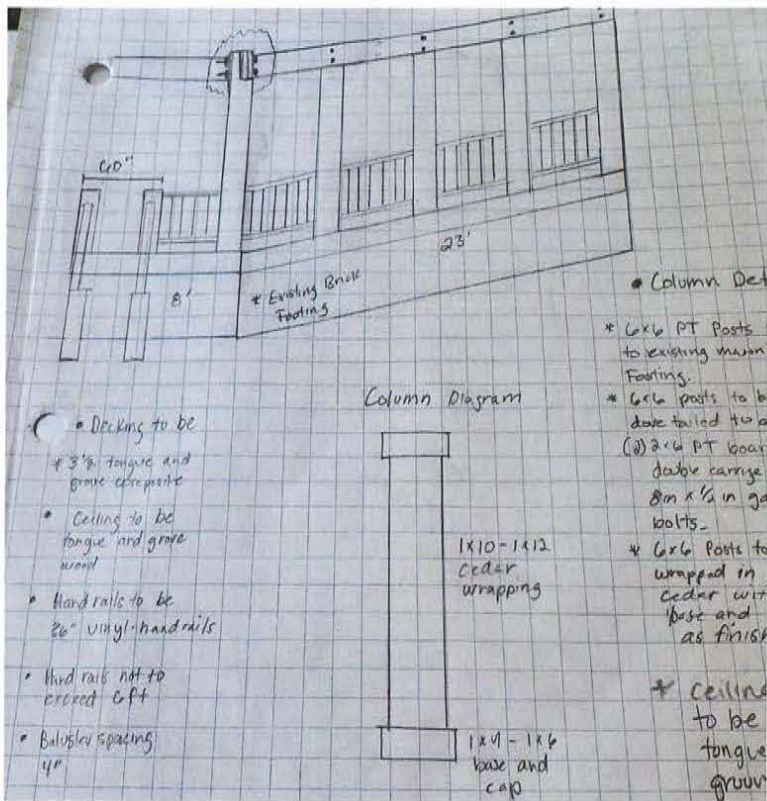 60"
8'
23'
* Existing Brick
Footing
• Decking to be
* 3 ½ tongue and
grove composite
• Ceiling to be
tongue and grove
wood
• Hand rails to be
36" vinyl handrails
• Hand rails not to
exceed 6ft
• Baluster spacing
4"
Column Diagram
1x10 - 1x12
cedar
wrapping
1x4 - 1x6
base and
cap
• Column Det
* 6x6 PT Posts
to existing mason
Footing.
* 6x6 posts to b
dove tailed to a
(2) 2x6 PT boar
double carrige
8in x ½ in ga
bolts.
* 6x6 Posts to
wrapped in
cedar wit
base and
as finish
* Ceiling
to be
tongue
groov